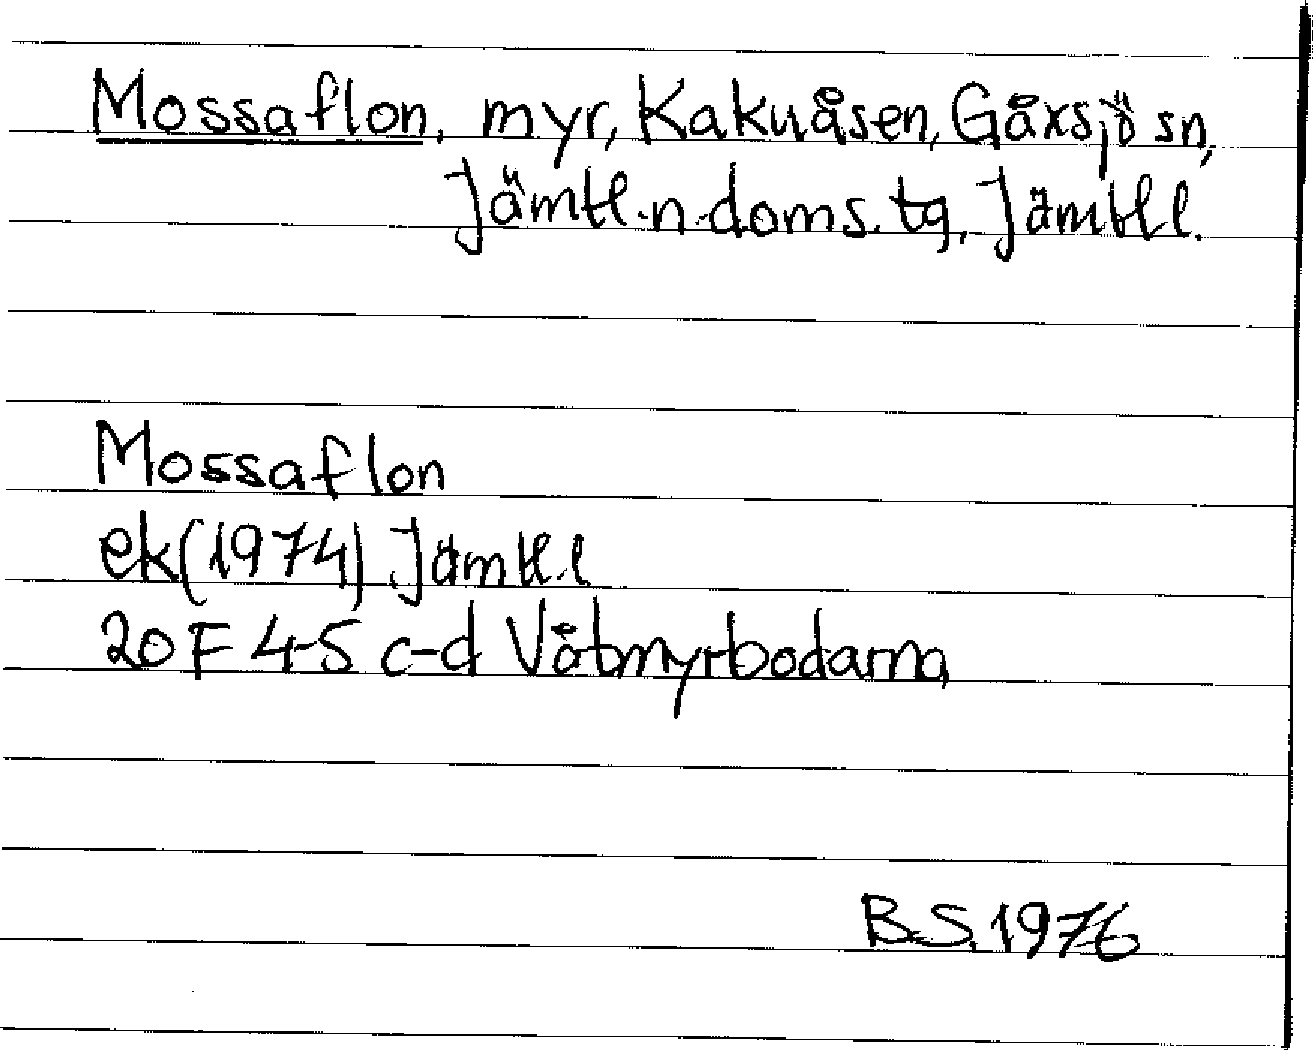 Mossaflon, myr, Kakuåsen, Gåxsjö sn,
Jämtl. n. doms. tg, Jämtl l.
Mossaflon
ek (1974) Jämtl. l
20 F 4-5 c-d Våtmyrbodarna
B.S. 1976